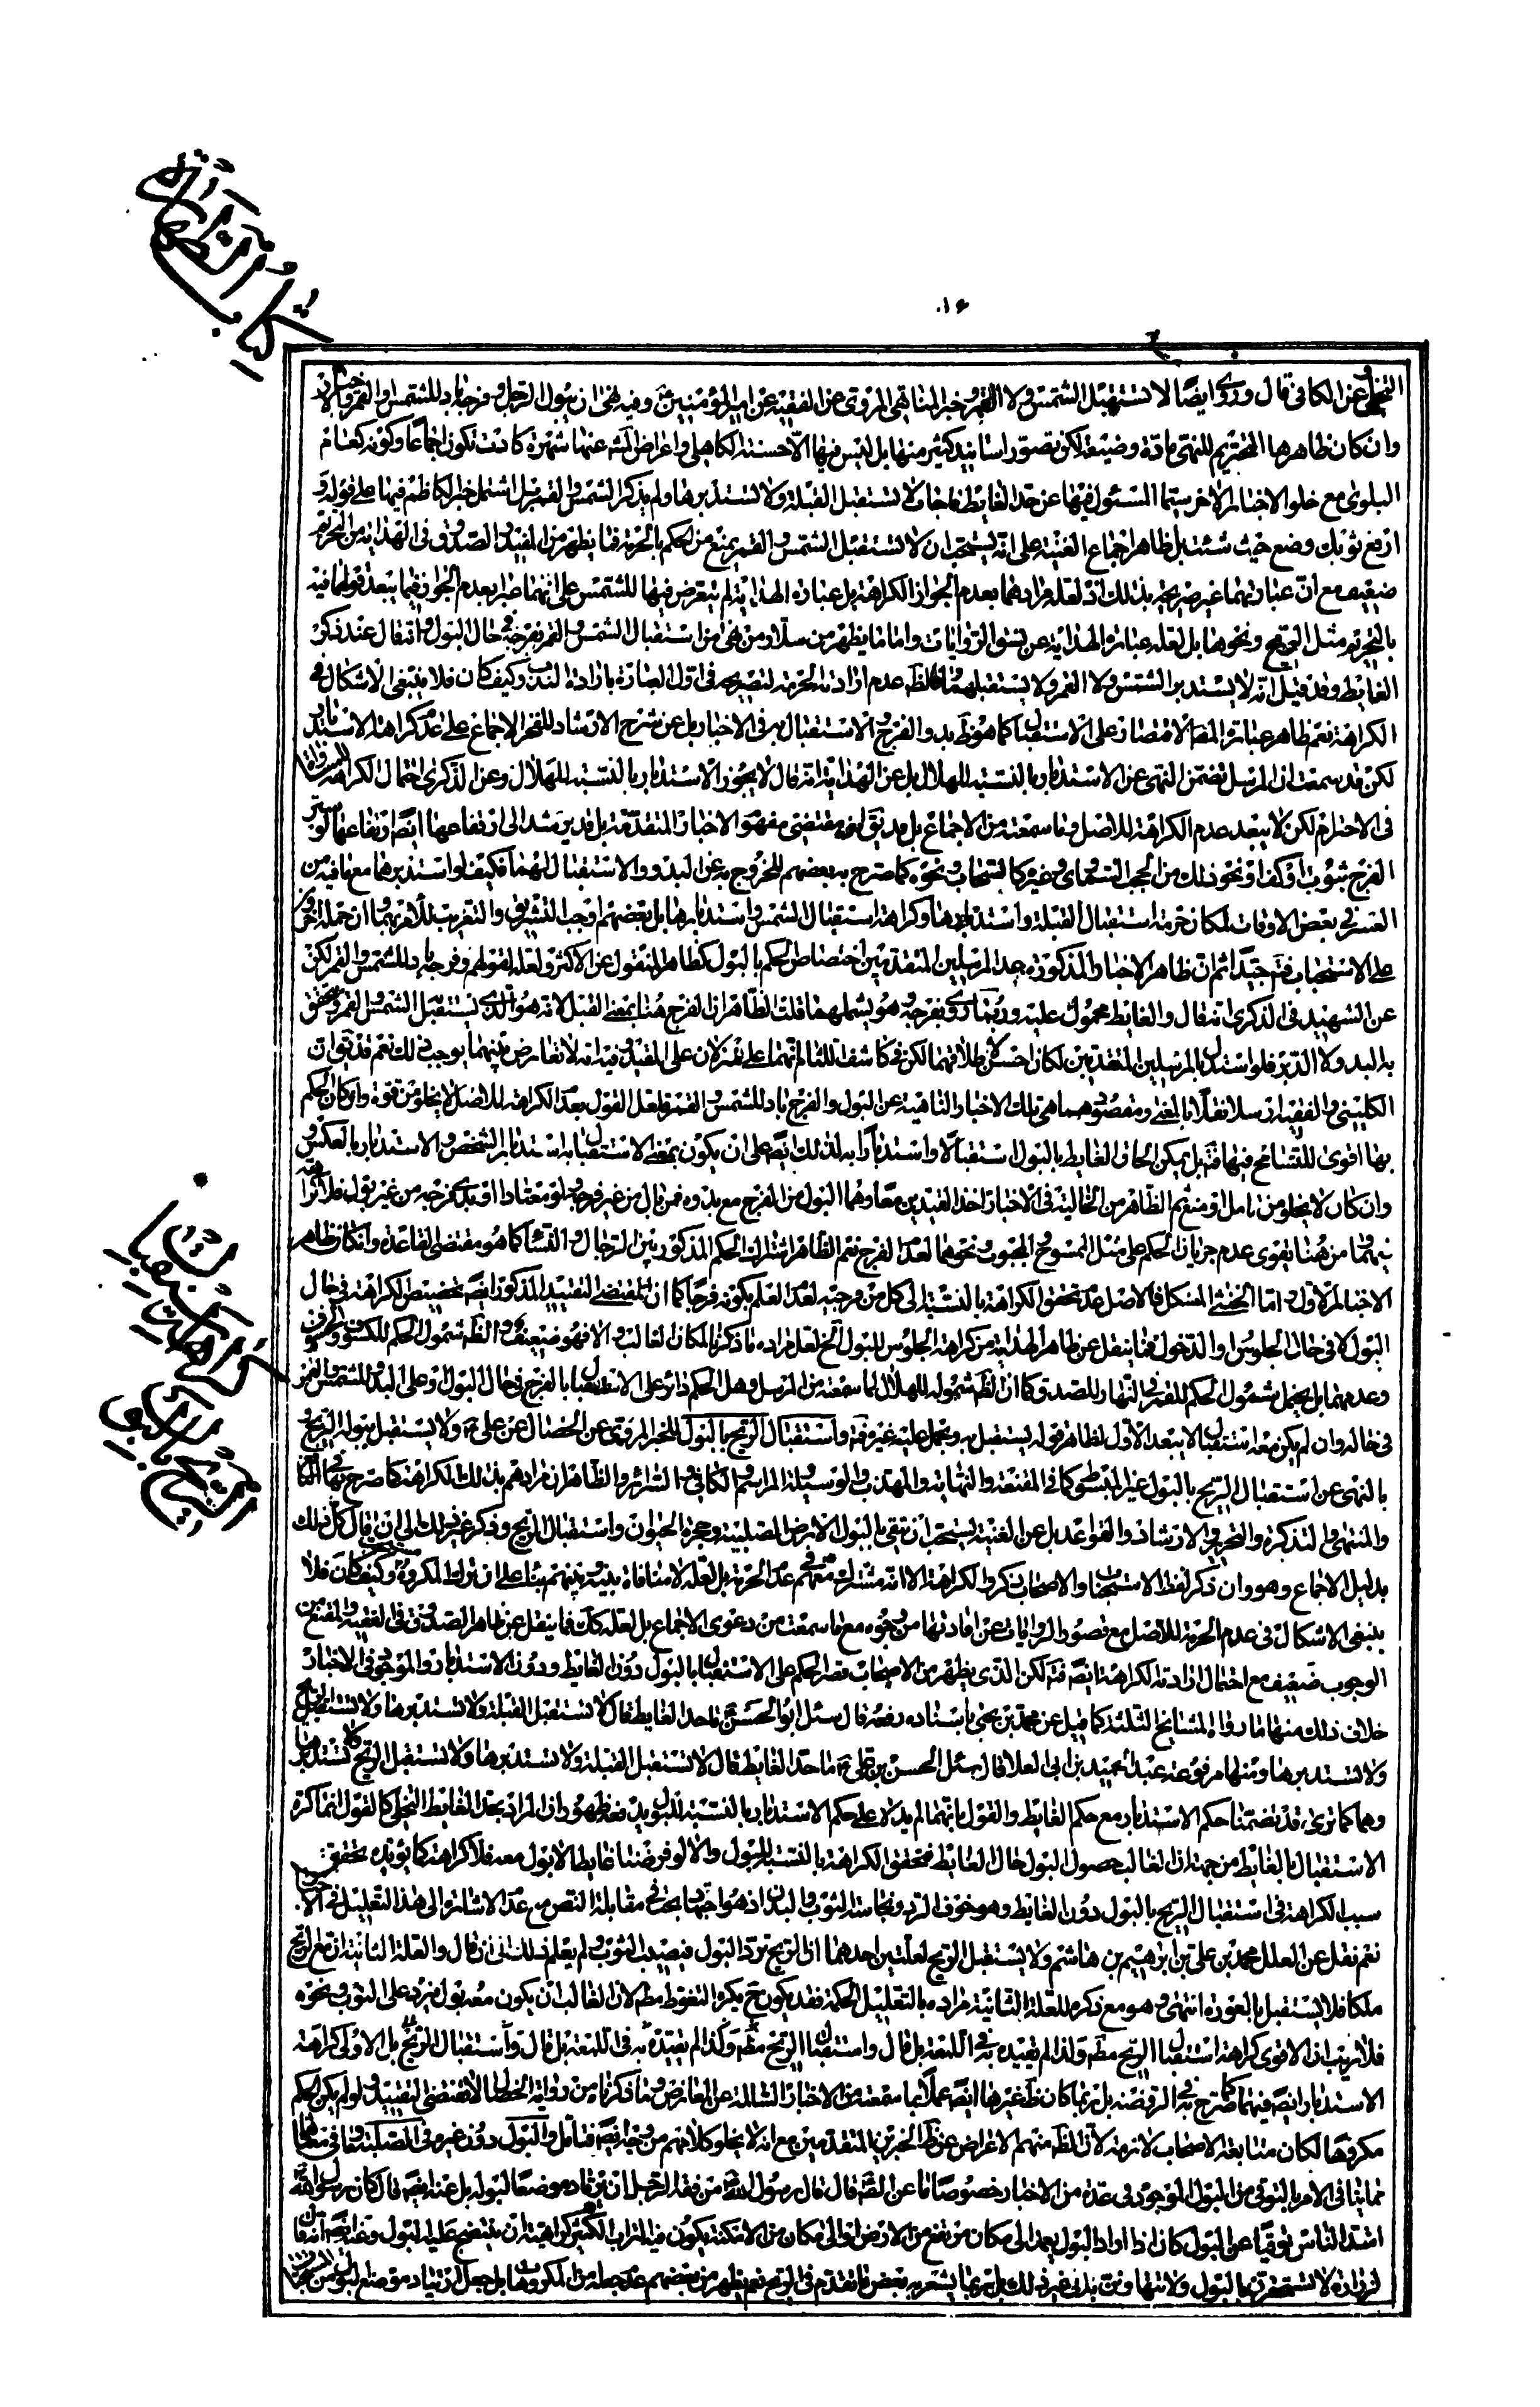 كتاب الطهارة
١٠٤
عن الكافى قال وروى ايضا لا تستقبل الشمس ولا القمر وخبر المناهى المروى عن الفقيه عن امير المؤمنين وفيه نهى ان يبول الرجل وفرجه باد للشمس والقمر
وان كان ظاهرها التحريم للنهى مادة وضيغة لكن قصور اسانيد كثير منها بل ليس فيها الا حسنة الكاهلى واعراض عنها شهرة كادت تكون اجماعا وكونه كعام
البلوى مع خلو الاخبار الاخر سيما المسئول فيها عن حد الغايط فاجاب لا تستقبل القبلة ولا تستدبرها ولم يذكر الشمس والقمر بل اشتمل خبر الكاظم فيها على قوله و
ارفع ثوبك وضع حيث شئت بل ظاهر اجماع الغنية على انه يستحب ان لا تستقبل الشمس والقمر يمنع من الحكم بالحرمة فما يظهر من المفيد والصدوق فى الهداية من التحريم
ضعيف مع ان عبارتهما غير صريحة بذلك اذ لعل مرادهما بعدم الجواز الكراهة بل عبارة الهداية لم يتعرض فيها للشمس على انهما عبرا بعدم الجواز فيما يبعد قولهما فيه
بالتحريم مثل الريح ونحوها بل لعله عبارة الهداية عن متون الروايات واما ما يظهر من سلار من نهى من استقبال الشمس والقمر بفرجه فى حال البول و قال عند ذكر
الغايط وقد قيل انه لا يستدبر الشمس ولا القمر ولا يستقبلهما فالظ عدم ارادته الحرمة لتصريحه فى اول العبارة بارادة الندب وكيف كان فلا ينبغى الاشكال فى
الكراهة نعم ظاهر عبارة المص الاقتصار على الاستقبال كما هو ظ بدو الفرج و الاستقبال به فى الاخبار بل عن شرح الارشاد للفخر الاجماع على عدم كراهة الاستدبار
لكن قد سمعت ان المرسل تضمن النهى عن الاستدبار بالنسبة للهلال بل عن الهداية انه قال لا يجوز الاستدبار بالنسبة للهلال وعن الذكرى احتمال الكراهة للمساواة
فى الاحترام لكن لا يبعد عدم الكراهة للاصل وما سمعته من الاجماع بل قد يق انه مقتضى مفهوم الاخبار المتقدمة بل قد يرشد الى ارتفاعها ايضا ارتفاعها لو ستر
الفرج بثوب او كف او نحو ذلك من الحجب السماوى وغيره كالسحاب ونحوه كما صرح به بعضهم للخروج به عن البدو والاستقبال لهما فكيف لو استدبرهما مع ما فيه من
العسر فى بعض الاوقات لمكان حرمة استقبال القبلة واستدبارها وكراهة استقبال الشمس واستدبارها بل بعضهم اوجب التشريق والتغريب
على الاستحباب فتم جيدا ثم ان ظاهر الاخبار المذكورة عدا المرسلين المتقدمين اختصاص الحكم بالبول كظاهر المنقول عن الاكثر ولعله لقولهم وفرجه باد للشمس والقمر لكن
عن الشهيد فى الذكرى انه قال والغايط محمول عليه وربما روى بفرجه وهو يشملهما قلت الظاهر ان الفرج هنا بمعنى القبل لانه هو الذى يستقبل الشمس والقمر ويتحقق
به البدو لا الدبر فلو استدل بالمرسلين المتقدمين لكان احسن لاطلاقهما لكن فى كاشف اللثام انهما على نقله ان على المقيد وفيه انه لا تعارض بينهما يوجب ذلك نعم قد يق ان
الكلينى والفقيه ارسلا نقلا بالمعنى ومقصودهما هى تلك الاخبار الناهية عن البول والفرج باد للشمس والقمر فلعل القول بعدم الكراهة للاصل لا يخلو من قوة وان كان الحكم
بها اقوى للتسامح فيها فتم بل يمكن الحاق الغايط بالبول استقبالا واستدبارا به لذلك ايضا على ان يكون بمعنى الاستقبال به استدبار الشخص والاستدبار بالعكس
وان كان لا يخلو من تامل او منع ثم الظاهر من الحالية فى الاخبار اخذ القيدين معا وهما البول من الفرج مع بدوه فمن بال من غير فرجه ولو معتادا او ابدى فرجه من غير بول فلا كراهة
بهما ومن هنا يقوى عدم جريان الحكم على مثل الممسوح والمجبوب ونحوهما لعدم الفرج نعم الظاهر اشتراك الحكم المذكور بين الرجال والنساء كما هو مقتضى القاعدة وان كان ظاهر
الاخبار الاول اما الخنثى المشكل فالاصل عدم تحقق الكراهة بالنسبة الى كل من فرجيه لعدم العلم بكونه فرجا كما ان المقتضى التقييد المذكور ايضا تخصيص الكراهة فى حال
البول لا فى حال الجلوس او الدخول فما ينقل عن ظاهر الهداية من كراهة الجلوس للبول الخ لعل مراده ما ذكرنا لمكان الغالب والا فهو ضعيف و الظ شمول الحكم للكسوف والخسوف
وعدمهما بل يحتمل شمول الحكم للقمر فى النهار للصدق كما ان الظ شموله للهلال لما سمعته من المرسل وهل الحكم دائر على الاستقبال بالفرج فى حال البول او على البدو للشمس والقمر
فى حاله وان لم يكن معه استقبال لا يبعد الاول لظاهر قوله يستقبل به ويحمل عليه غيره فتم واستقبال الريح بالبول للخبر المروى عن الخصال عن على ع ولا يستقبل ببوله الريح و
بالنهى عن استقبال الريح بالبول عبر المبسوط كما فى المقنعة والنهاية والمهذب والوسيلة والمراسم و الكافى والسرائر والظاهر ان مرادهم بذلك الكراهة كما صرح بها فى
والمنتهى والتذكرة والتحرير والارشاد والقواعد بل عن الغنية يستحب ان يتقى بالبول الارض الصلبة وجحرة الحيوان واستقبال الريح وذكر غير ذلك الى ان قال كل ذلك
بدليل الاجماع وهو وان ذكر لفظ الاستحباب والاصحاب ذكروا الكراهة الا انه مشترك معهم فى عدم الحرمة بل لعله لا منافاة بينه وبينهم بناء على ان ترك المكروه وكيف كان فلا
ينبغى الاشكال فى عدم الحرمة للاصل مع قصور الروايات عن افادتها من وجوه مع ما سمعت من دعوى الاجماع بل لعله كك فما ينقل عن ظاهر الصدوق فى الفقيه والمقنع من
الوجوب ضعيف مع احتمال ارادته الكراهة ايضا فتم لكن الذى يظهر من الاصحاب قصر الحكم على الاستقبال بالبول دون الغايط ودون الاستدبار والموجود فى الاخبار
خلاف ذلك منها ما رواه المشايخ الثلثة كما قيل عن محمد بن يحيى باسناده رفعه قال سئل ابو الحسن ع ما حد الغايط قال لا تستقبل القبلة ولا تستدبرها ولا تستقبل الريح
ولا تستدبرها ومنها مرفوعة عبد الحميد بن ابى العلا قال سئل الحسن بن على ع ما حد الغايط قال لا تستقبل القبلة ولا تستدبرها ولا تستقبل الريح ولا تستدبرها
وهما كما ترى قد تضمنا حكم الاستدبار مع حكم الغايط والقول بانهما لم يدلا على حكم الاستدبار بالنسبة للبول يدفعه ظهور ان المراد بحد الغايط التخلى كالقول انما كره
الاستقبال بالغايط من جهة ان الغالب حصول البول حال الغايط فتحقق الكراهة بالنسبة للبول والا لو فرضنا غايطا لا بول معه فلا كراهة كما يؤيده تحقق
سبب الكراهة فى استقبال الريح بالبول دون الغايط وهو خوف الرد ونجاسة الثوب والبدن اذ هو اجتهاد بحت فى مقابلة النص مع عدم الاشارة الى هذا التعليل فى
نعم نقل عن العلل محمد بن على بن ابرهيم بن هاشم ولا يستقبل الريح لعلتين احدهما ان الريح ترد البول فيصيب الثوب ولم يعلم ذلك الى ان قال والعلة الثانية ان مع الريح
ملكا فلا يستقبل بالعورة انتهى وهو مع ذكره للعلة الثانية مراده بالتعليل الحكمة فقد يكون ح يكره التغوط مط لان الغالب ان يكون معه بول فيرد على الثوب ونحوه
فلا ريب ان الاقوى كراهة استقبال الريح مط ولذا لم يقيده به فى اللمعة بل قال واستقبال الريح بل الاولى كراهة
الاستدبار ايضا فيهما كما صرح به فى الروضة بل ربما كان ظ غيرها ايضا عملا بما سمعته من الاخبار السالمة عن المعارض وما ذكرناه من رواية الخصال لا تقتضى تقييد ولو لم يكن الحكم
مكروها لكان متابعة الاصحاب لازمة لان الظ منهم الاعراض عن ظ الخبرين المتقدمين مع انه لا يخلو كلامهم من وجه ايضا فتامل والبول دون غيره فى الصلبة وما فى معناها
مما ينافى الامر بالتوقى من البول الموجود فى عدة من الاخبار خصوصا ما عن الص قال قال رسول الله من فقه الرجل ان يرتاد موضعا لبوله بل عنه ايضا قال كان رسول الله
اشد الناس توقيا عن البول كان اذا اراد البول يعمد الى مكان مرتفع من الارض او الى مكان من الامكنة يكون فيه التراب الكثير كراهية ان ينتضح عليه البول وعنه ايضا انه قال
لزرارة لا تستحقرن بالبول ولا تتهاونن به الى غير ذلك بل ربما يشعر به بعض ما تقدم فى الريح نعم يظهر من بعضهم عدم جعله من المكروهات بل جعل ارتياد موضع للبول من
كراهة استقبال
الريح بالبول